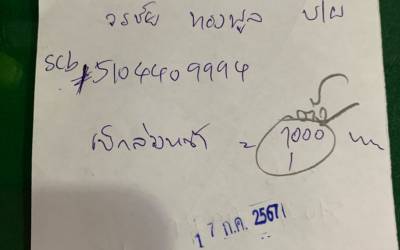 วรชัย ทองพูล ช/ผ
scb #5104409994
เบิกล่วงหน้า = 7000 บาท
1
17 ก.ค. 2567